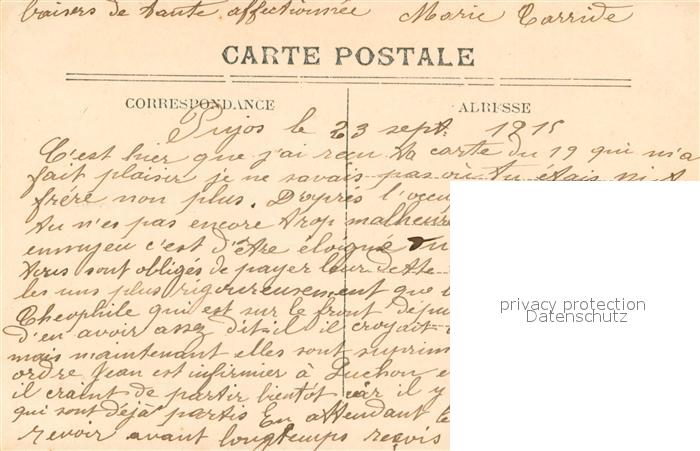 baisers de tante affectionnée Marie Carride
CARTE POSTALE
CORRESPONDANCE
ADRESSE
Pujos le 23 sept. 1915
C'est hier que j'ai reçu ta carte du 19 qui m'a
fait plaisir je ne savais pas où tu étais ni t
frère non plus. D'après l'occu
tu n'es pas encore trop malheure
envoyeu c'est d'être éloigné
tous sont obligés de payer leur dette
les uns plus rigoureusement que l
Théophile qui est sur le front depu
d'en avoir assez dit-il il croyait
mais maintenant elles sont suprim
ordre Jean est infirmier à Luchon e
il craint de partir bientôt car il y
qui sont déjà partis En attendant le
revoir avant longtemps reçois
privacy protection
Datenschutz